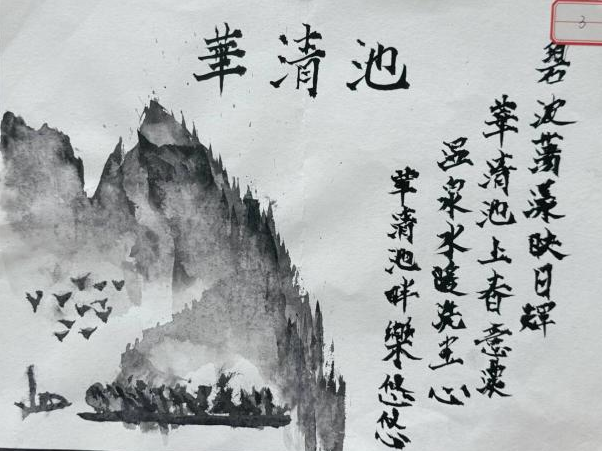 3
華清池
碧波蕩漾映日輝
華清池上春意濃
温泉水暖洗尘心
華清池畔樂悠悠